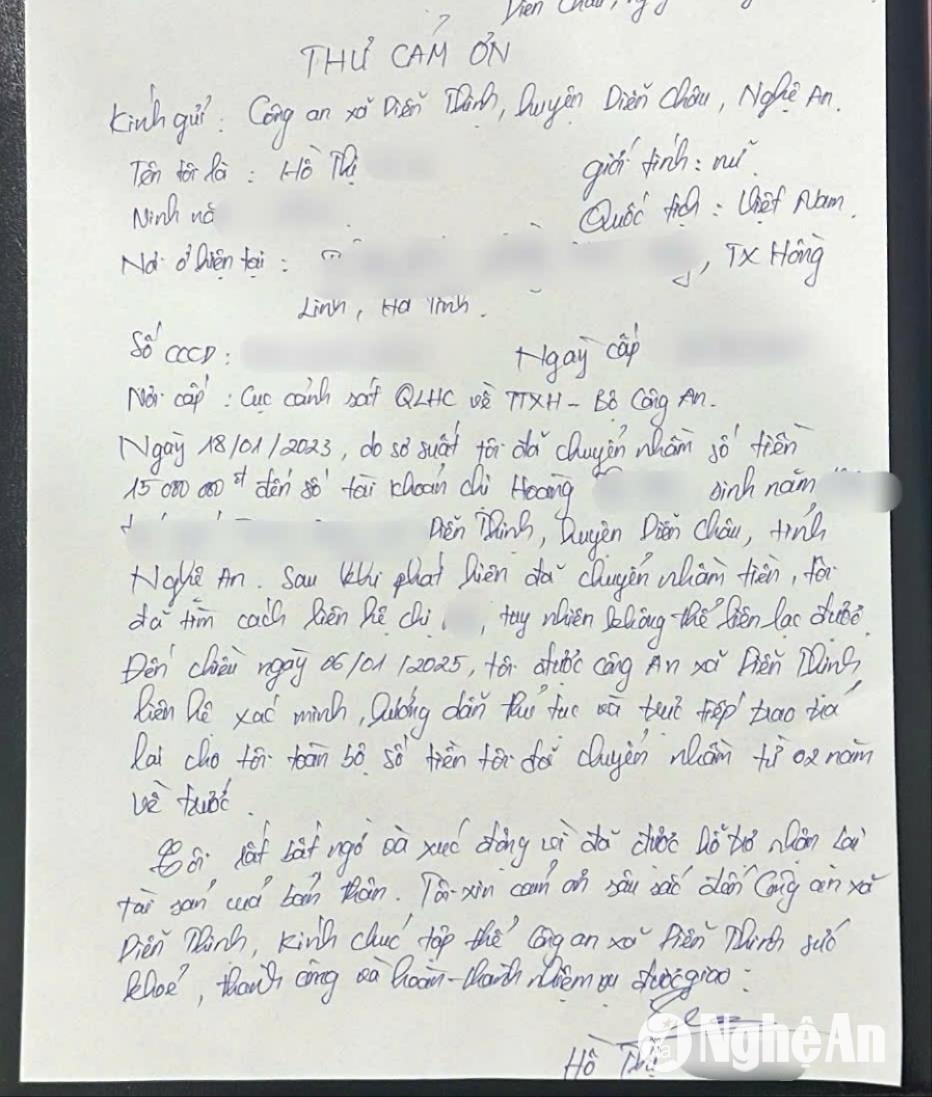 Diễn Châu, ng
THƯ CẢM ƠN
Kính gửi : Công an xã Diễn Thịnh, huyện Diễn Châu, Nghệ An.
Tên tôi là : Hồ Thị giới tính : nữ.
Sinh nă Quốc tịch : Việt Nam.
Nơi ở hiện tại : , TX Hồng
Lĩnh, Hà Tĩnh.
Số CCCD : Ngày cấp
Nơi cấp : Cục cảnh sát QLHC về TTXH - Bộ Công An.
Ngày 18/01/2023, do sơ suất tôi đã chuyển nhầm số tiền
15 000 000đ đến số tài khoản chị Hoàng sinh năm
Diễn Thịnh, huyện Diễn Châu, tỉnh
Nghệ An. Sau khi phát hiện đã chuyển nhầm tiền, tôi
đã tìm cách liên hệ chị , tuy nhiên không thể liên lạc được.
Đến chiều ngày 06/01/2025, tôi được công An xã Diễn Thịnh
liên hệ xác minh, hướng dẫn thủ tục và trực tiếp trao trả
lại cho tôi toàn bộ số tiền tôi đã chuyển nhầm từ 02 năm
về trước.
Tôi rất bất ngờ và xúc động vì đã được hỗ trợ nhận lại
tài sản của bản thân. Tôi xin cảm ơn sâu sắc đến Công an xã
Diễn Thịnh, kính chúc tập thể Công an xã Diễn Thịnh sức
khoẻ, thành công và hoàn thành nhiệm vụ được giao.
Hồ Thị
Nghệ An